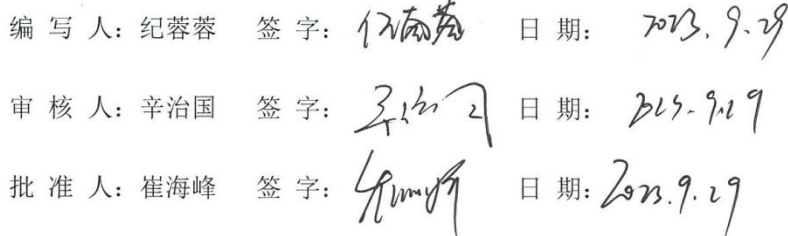 编 写 人：纪蓉蓉 签 字： 日 期： 2023.9.29
审 核 人：辛治国 签 字：辛治国 日 期： 2023.9.29
批 准 人：崔海峰 签 字： 日 期：2023.9.29